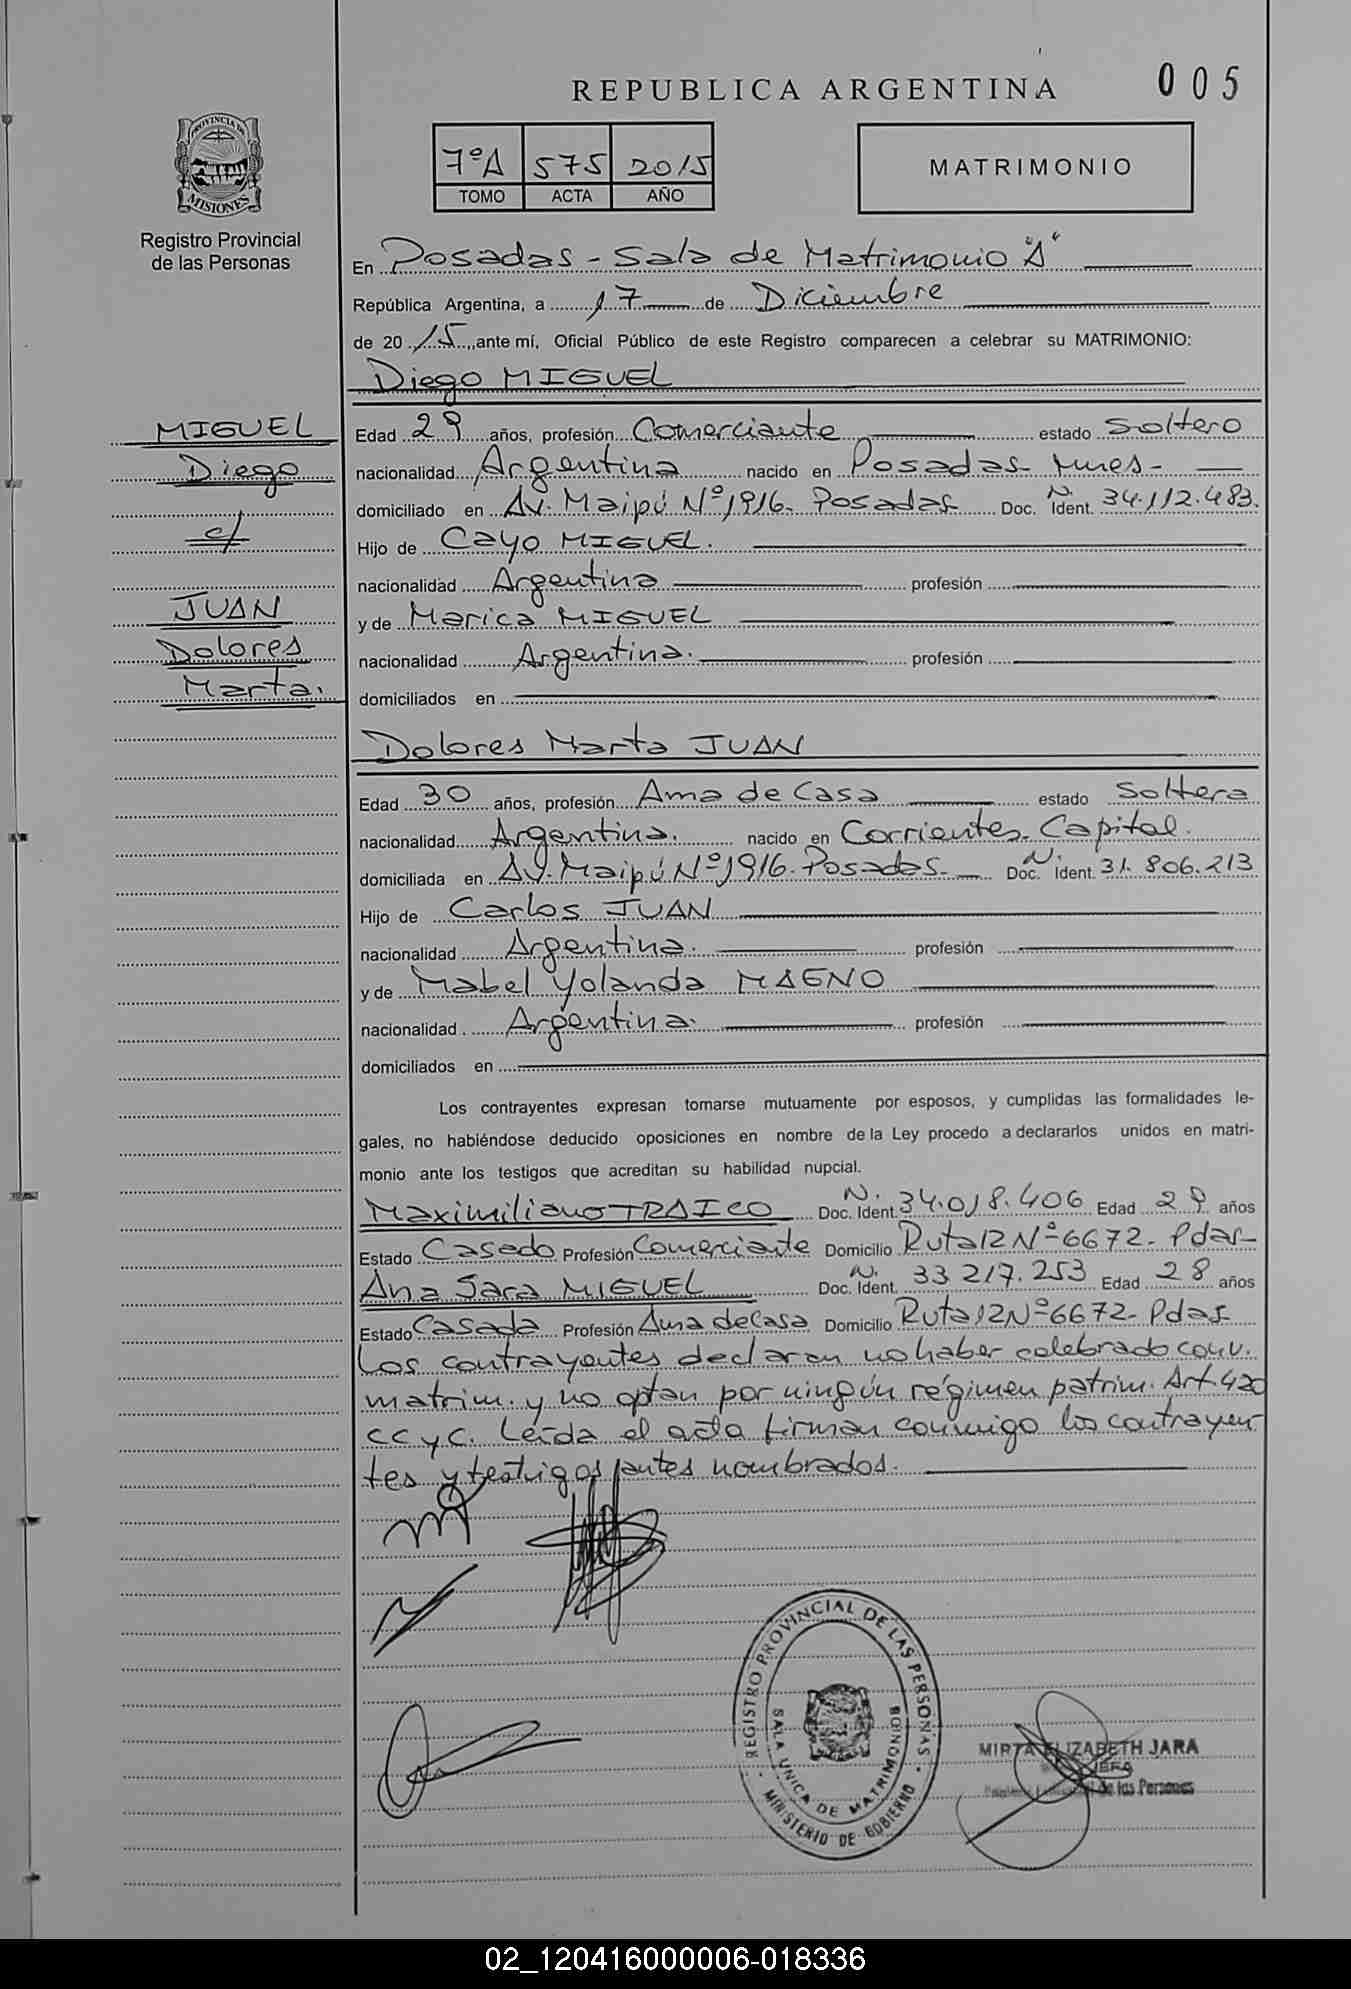 REPUBLICA ARGENTINA
005
PROVINCIA DE
MISIONES
Registro Provincial
de las Personas
7ºA 575 2015
TOMO ACTA AÑO
MATRIMONIO
En Posadas - Sala de Matrimonio "A"
República Argentina, a 17 de Diciembre
de 2015, ante mí, Oficial Público de este Registro comparecen a celebrar su MATRIMONIO:
Diego MIGUEL
MIGUEL
Diego
c/
JUAN
Dolores
Marta.
Edad 29 años, profesión Comerciante estado Soltero
nacionalidad Argentina nacido en Posadas Mnes-
domiciliado en Av. Maipú Nº1916. Posadas Doc. N. Ident. 34.112.483.
Hijo de Cayo MIGUEL.
nacionalidad Argentina profesión
y de Marica MIGUEL
nacionalidad Argentina. profesión
domiciliados en
Dolores Marta JUAN
Edad 30 años, profesión Ama de Casa estado Soltera
nacionalidad Argentina. nacido en Corrientes. Capital.
domiciliada en Av. Maipú Nº1916. Posadas. Doc. N. Ident. 31.806.213
Hijo de Carlos JUAN
nacionalidad Argentina. profesión
y de Mabel Yolanda MAENO
nacionalidad Argentina. profesión
domiciliados en
Los contrayentes expresan tomarse mutuamente por esposos, y cumplidas las formalidades le-
gales, no habiéndose deducido oposiciones en nombre de la Ley procedo a declararlos unidos en matri-
monio ante los testigos que acreditan su habilidad nupcial.
Maximiliano TRAICO Doc. N. Ident. 34.018.406 Edad 29 años
Estado Casado Profesión Comerciante Domicilio Ruta 12 Nº6672- Pdas-
Ana Sara MIGUEL Doc. N. Ident. 33 217.253 Edad 28 años
Estado Casada Profesión Ama de Casa Domicilio Ruta 12 Nº6672- Pdas-
Los contrayentes declaran no haber celebrado conv.
matrim. y no optan por ningún régimen patrim. Art. 420
CC y C. Leída el acta firman conmigo los contrayen-
tes y testigos antes nombrados.
REGISTRO PROVINCIAL DE LAS PERSONAS
SALA UNICA DE MATRIMONIOS
MINISTERIO DE GOBIERNO
MIRTA ELIZABETH JARA
JEFA
de las Personas
02_120416000006-018336